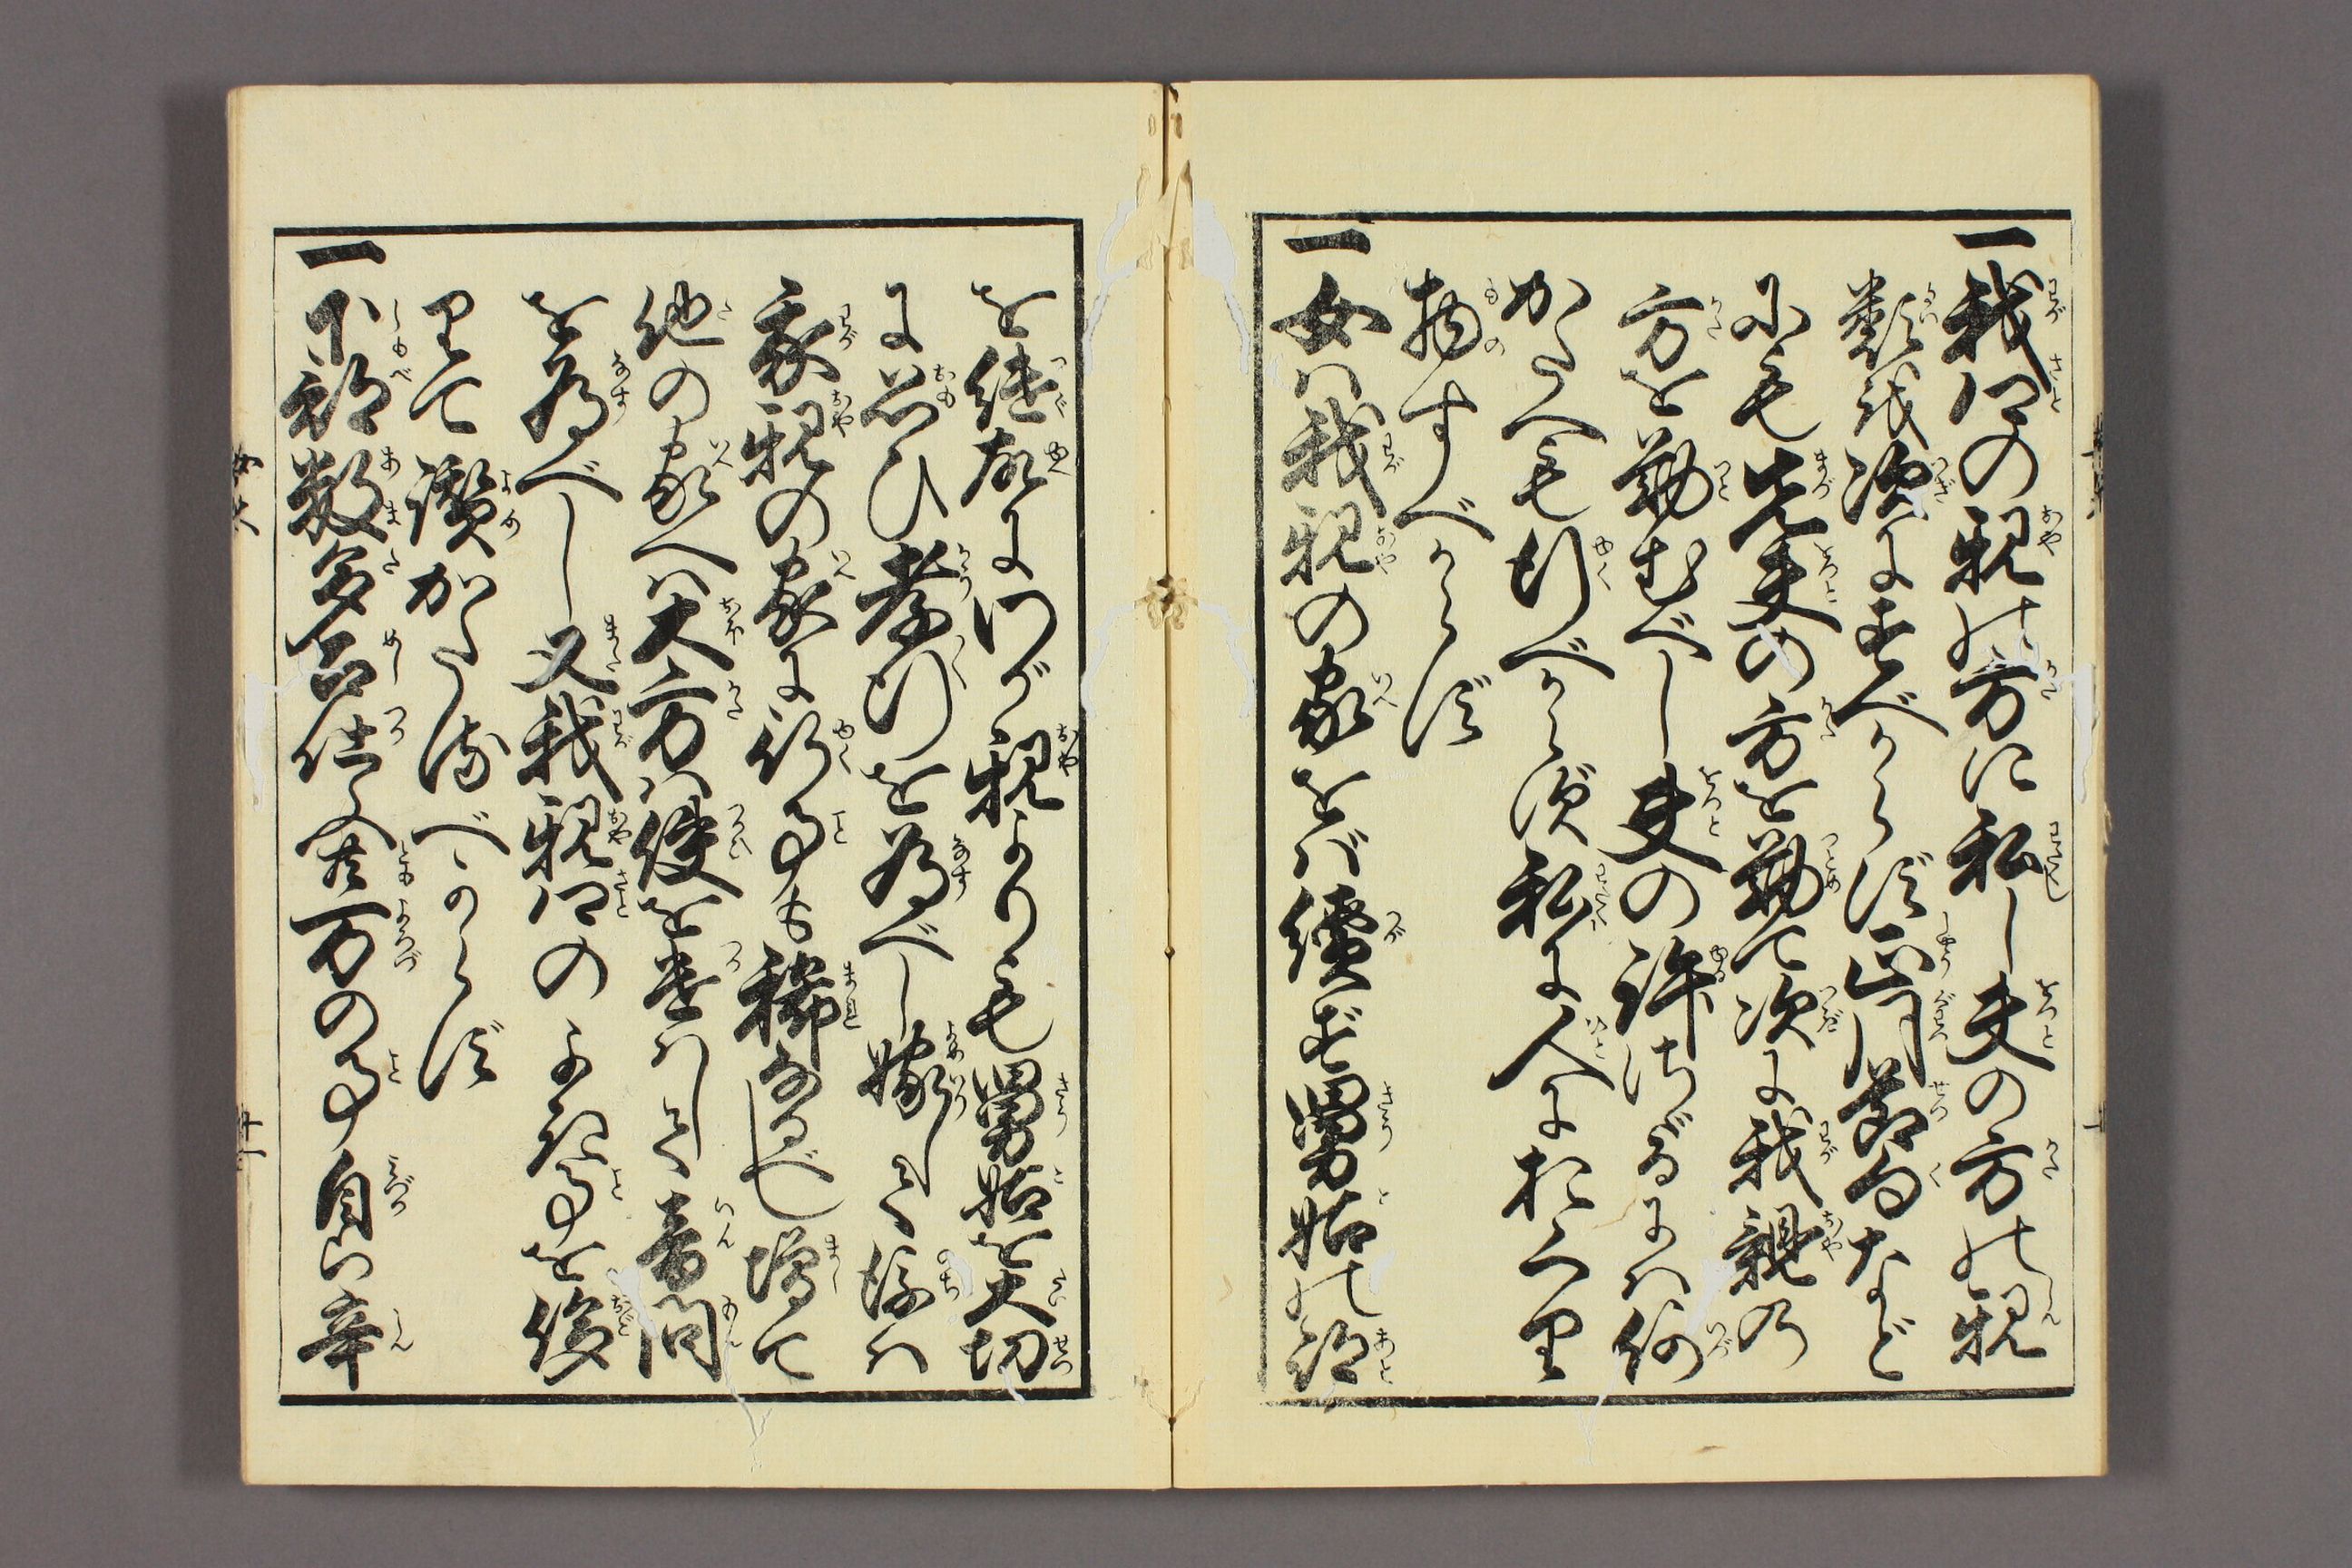 一我里の親の方に私し夫の方の親
類を次にすべからず正月節句など
にも先夫の方を勤て次に我親の
方を勤むべし夫の許さざるには何
かたへも行べからず私に人におくり
物すべからず
一女は我親の家をば續ず舅姑の跡
を継故に我が親よりも舅姑を大切
に思ひ孝行を為べし嫁して後は
我親の家に行事も稀なるべし増て
他の家へは大方は使を遣はして音問
を為べし又我親里の よき事を誇
りて讃かたるべからず
一下部数多召仕ふ共万の事自は辛
女大